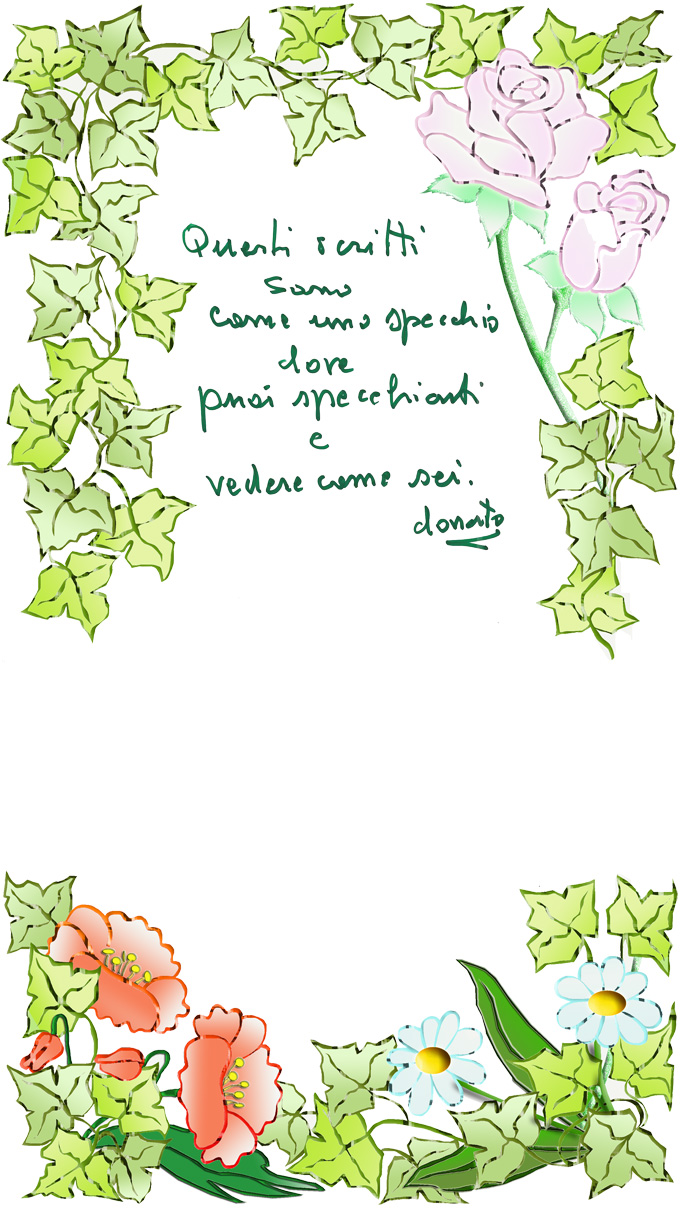 Questi scritti
sono
come uno specchio
dove
puoi specchiarti
e
vedere come sei.
donato